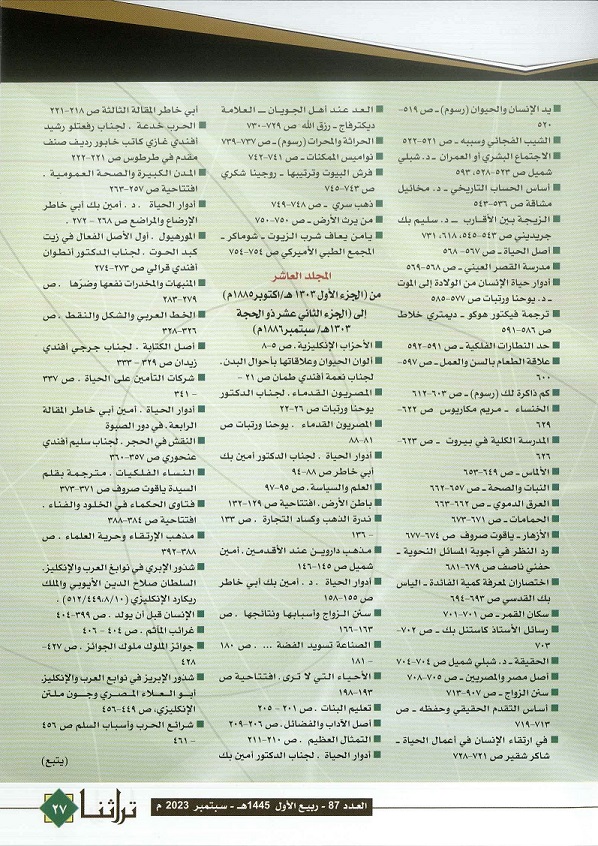 يد الإنسان والحيوان (رسوم) ـ ص ٥١٩-
٥٢٠
الشيب الفجائي وسببه ـ ص ٥٢١-٥٢٢
الاجتماع البشري أو العمران ـ د. شبلي
شميل ص ٥٢٣-٥٢٨، ٥٩٣
أساس الحساب التاريخي ـ د. مخائيل
مشاقة ص ٥٣٦-٥٤٣
الزيجة بين الأقارب ــ د. سليم بك
جريديني ص ٥٤٣-٥٤٥، ٦١٨، ٧٣١
أصل الحياة ـ ص ٥٦٧- ٥٦٨
مدرسة القصر العيني ـ ص ٥٦٨-٥٦٩
أدوار حياة الإنسان من الولادة إلى الموت
ـ د. يوحنا ورتبات ص ٥٧٧-٥٨٥
ترجمة فيكتور هوكو ـ ديمتري خلاط
ص ٥٨٦-٥٩١
حد النظارات الفلكية ـ ص ٥٩١-٥٩٢
علاقة الطعام بالسن والعمل ـ ص ٥٩٧-
٦٠٠
كم ذاكرة لك (رسوم) ـ ص ٦٠٣-٦١٢
الخنساء ـ مريم مكاريوس ص ٦٢٢-
٦٢٩
المدرسة الكلية في بيروت ـ ص ٦٢٣-
٦٢٦
الألماس ـ ص ٦٤٩-٦٥٣
النبات والصحة ـ ص ٦٥٧-٦٦٢
العرق الدموي ـ ص ٦٦٢-٦٦٣
الحمامات ـ ص ٦٧١-٦٧٣
الأزهار ـ ياقوت صروف ص ٦٧٤-٦٧٧
رد النظر في أجوبة المسائل النحوية ـ
حفني ناصف ص ٦٧٩-٦٨١
اختصارات لمعرفة كمية الفائدة ـ الياس
بك القدسي ص ٦٩٣-٦٩٤
سكان القمر ـ ص ٧٠١-٧٠١
رسائل الأستاذ كاستنل بك ـ ص ٧٠٢-
٧٠٣
الحقيقة ـ د. شبلي شميل ص ٧٠٤-٧٠٤
أصل مصر والمصريين ـ ص ٧٠٥-٧٠٨
سنن الزواج ـ ص ٩٠٧-٧١٣
أساس التقدم الحقيقي وحفظه ـ ص
٧١٣-٧١٩
في ارتقاء الإنسان في أعمال الحياة ـ
شاكر شقير ص ٧٢١-٧٢٨
العد عند أهل الجويان ــ العلامة
ديكترفاج ـ رزق الله ص ٧٢٩-٧٣٠
الحراثة والمحراث (رسوم) ـ ص ٧٣٧-٧٣٩
نواميس الممكنات ـ ص ٧٤١-٧٤٢
فرش البيوت وترتيبها ـ روجينا شكري
ص ٧٤٣-٧٤٥
ذهب سري ـ ص ٧٤٨-٧٤٩
من يرث الأرض ـ ص ٧٥٠-٧٥٠
يامن يعاف شرب الزيوت ـ شوماكر ـ
المجمع الطبي الأميركي ص ٧٥٤-٧٥٤
المجلد العاشر
من (الجزء الأول ١٣٠٣ هـ/أكتوبر١٨٨٥م)
إلى (الجزء الثاني عشر ذو الحجة
١٣٠٣هـ/ سبتمبر١٨٨٦م)
الأحزاب الإنكليزية . ص ٥-٨
ألوان الحيوان وعلاقاتها بأحوال البدن .
لجناب نعمة أفندي طمان ص ٢١ -
المصريون القدماء . لجناب الدكتور
يوحنا ورتبات ص ٢٦-٢٢
المصريون القدماء . يوحنا ورتبات ص
٨١-٨٨
أدوار الحياة . لجناب الدكتور أمين بك
أبي خاطر ص ٨٨-٩٤
العلم والسياسة . ص ٩٥-٩٧
باطن الأرض . افتتاحية ص ١٢٩-١٣٢
ندرة الذهب وكساد التجارة . ص ١٣٣
- ١٣٦
مذهب داروين عند الأقدمين . أمين
شميل ص ١٤٥-١٤٦
أدوار الحياة . د. أمين بك أبي خاطر
ص ١٥٥-١٥٨
سنن الزواج وأسبابها ونتائجها . ص
١٦٣-١٦٦
الصناعة تسويد الفضة ... . ص ١٨٠
- ١٨١
الأحياء التي لا ترى . افتتاحية ص
١٩٣-١٩٨
تعليم البنات . ص ٢٠١ - ٢٠٥
أصل الآداب والفضائل . ص ٢٠٦-٢٠٩
التمثال العظيم . ص ٢١٠-٢١١
أدوار الحياة . لجناب الدكتور أمين بك
أبي خاطر المقالة الثالثة ص ٢١٨-٢٢١
الحرب خدعة . لجناب رفعتلو رشيد
أفندي غازي كاتب خابور رديف صنف
مقدم في طرطوس ص ٢٢١-٢٢٢
المدن الكبيرة والصحة العمومية .
افتتاحية ص ٢٥٧-٢٦٣
أدوار الحياة . د . أمين بك أبي خاطر
الإرضاع والمراضع ص ٢٦٨- ٢٧٢ .
المورهيول . أول الأصل الفعال في زيت
كبد الحوت . لجناب الدكتور أنطوان
أفندي قرالي ص ٢٧٣-٢٧٤
المنبهات والمخدرات نفعها وضرها . ص
٢٧٩-٢٨٣
الخط العربي والشكل والنقط . ص
٣٢٦-٣٢٨
أصل الكتابة . لجناب جرجي أفندي
زيدان ص ٣٢٩ - ٣٣٣
شركات التأمين على الحياة . ص ٣٣٧
- ٣٤١
أدوار الحياة . أمين أبي خاطر المقالة
الرابعة . في دور الصبوة
النقش في الحجر . لجناب سليم أفندي
عنحوري ص ٣٥٧-٣٦٠
النساء الفلكيات . مترجمة بقلم
السيدة ياقوت صروف ص ٣٧١-٣٧٣
فتاوى الحكماء في الخلود والفناء .
افتتاحية ص ٣٨٤-٣٨٨
مذهب الإرتقاء وحرية العلماء . ص
٣٨٨-٣٩٢
شذور الإبري في نوابغ العرب والإنكليز.
السلطان صلاح الدين الأيوبي والملك
ريكارد الإنكليزي (٥١٢/٤٤٩،٨/١٠) .
الإنسان قبل أن يولد . ص ٣٩٩-٤٠٤
غرائب المأتم . ص ٤٠٤ - ٤٠٦
جوائز الملوك ملوك الجوائز . ص ٤٢٧-
٤٢٨
شذور الإبريز في نوابغ العرب والإنكليز
أبو العلاء المصري وجون ملتن
الإنكليزي، ص ٤٤٩-٤٥٦
شرائع الحرب وأسباب السلم ص ٤٥٦
- ٤٦١
(يتبع)
العدد 87 - ربيع الأول 1445هـ - سبتمبر 2023 م
تراثنا
٢٧